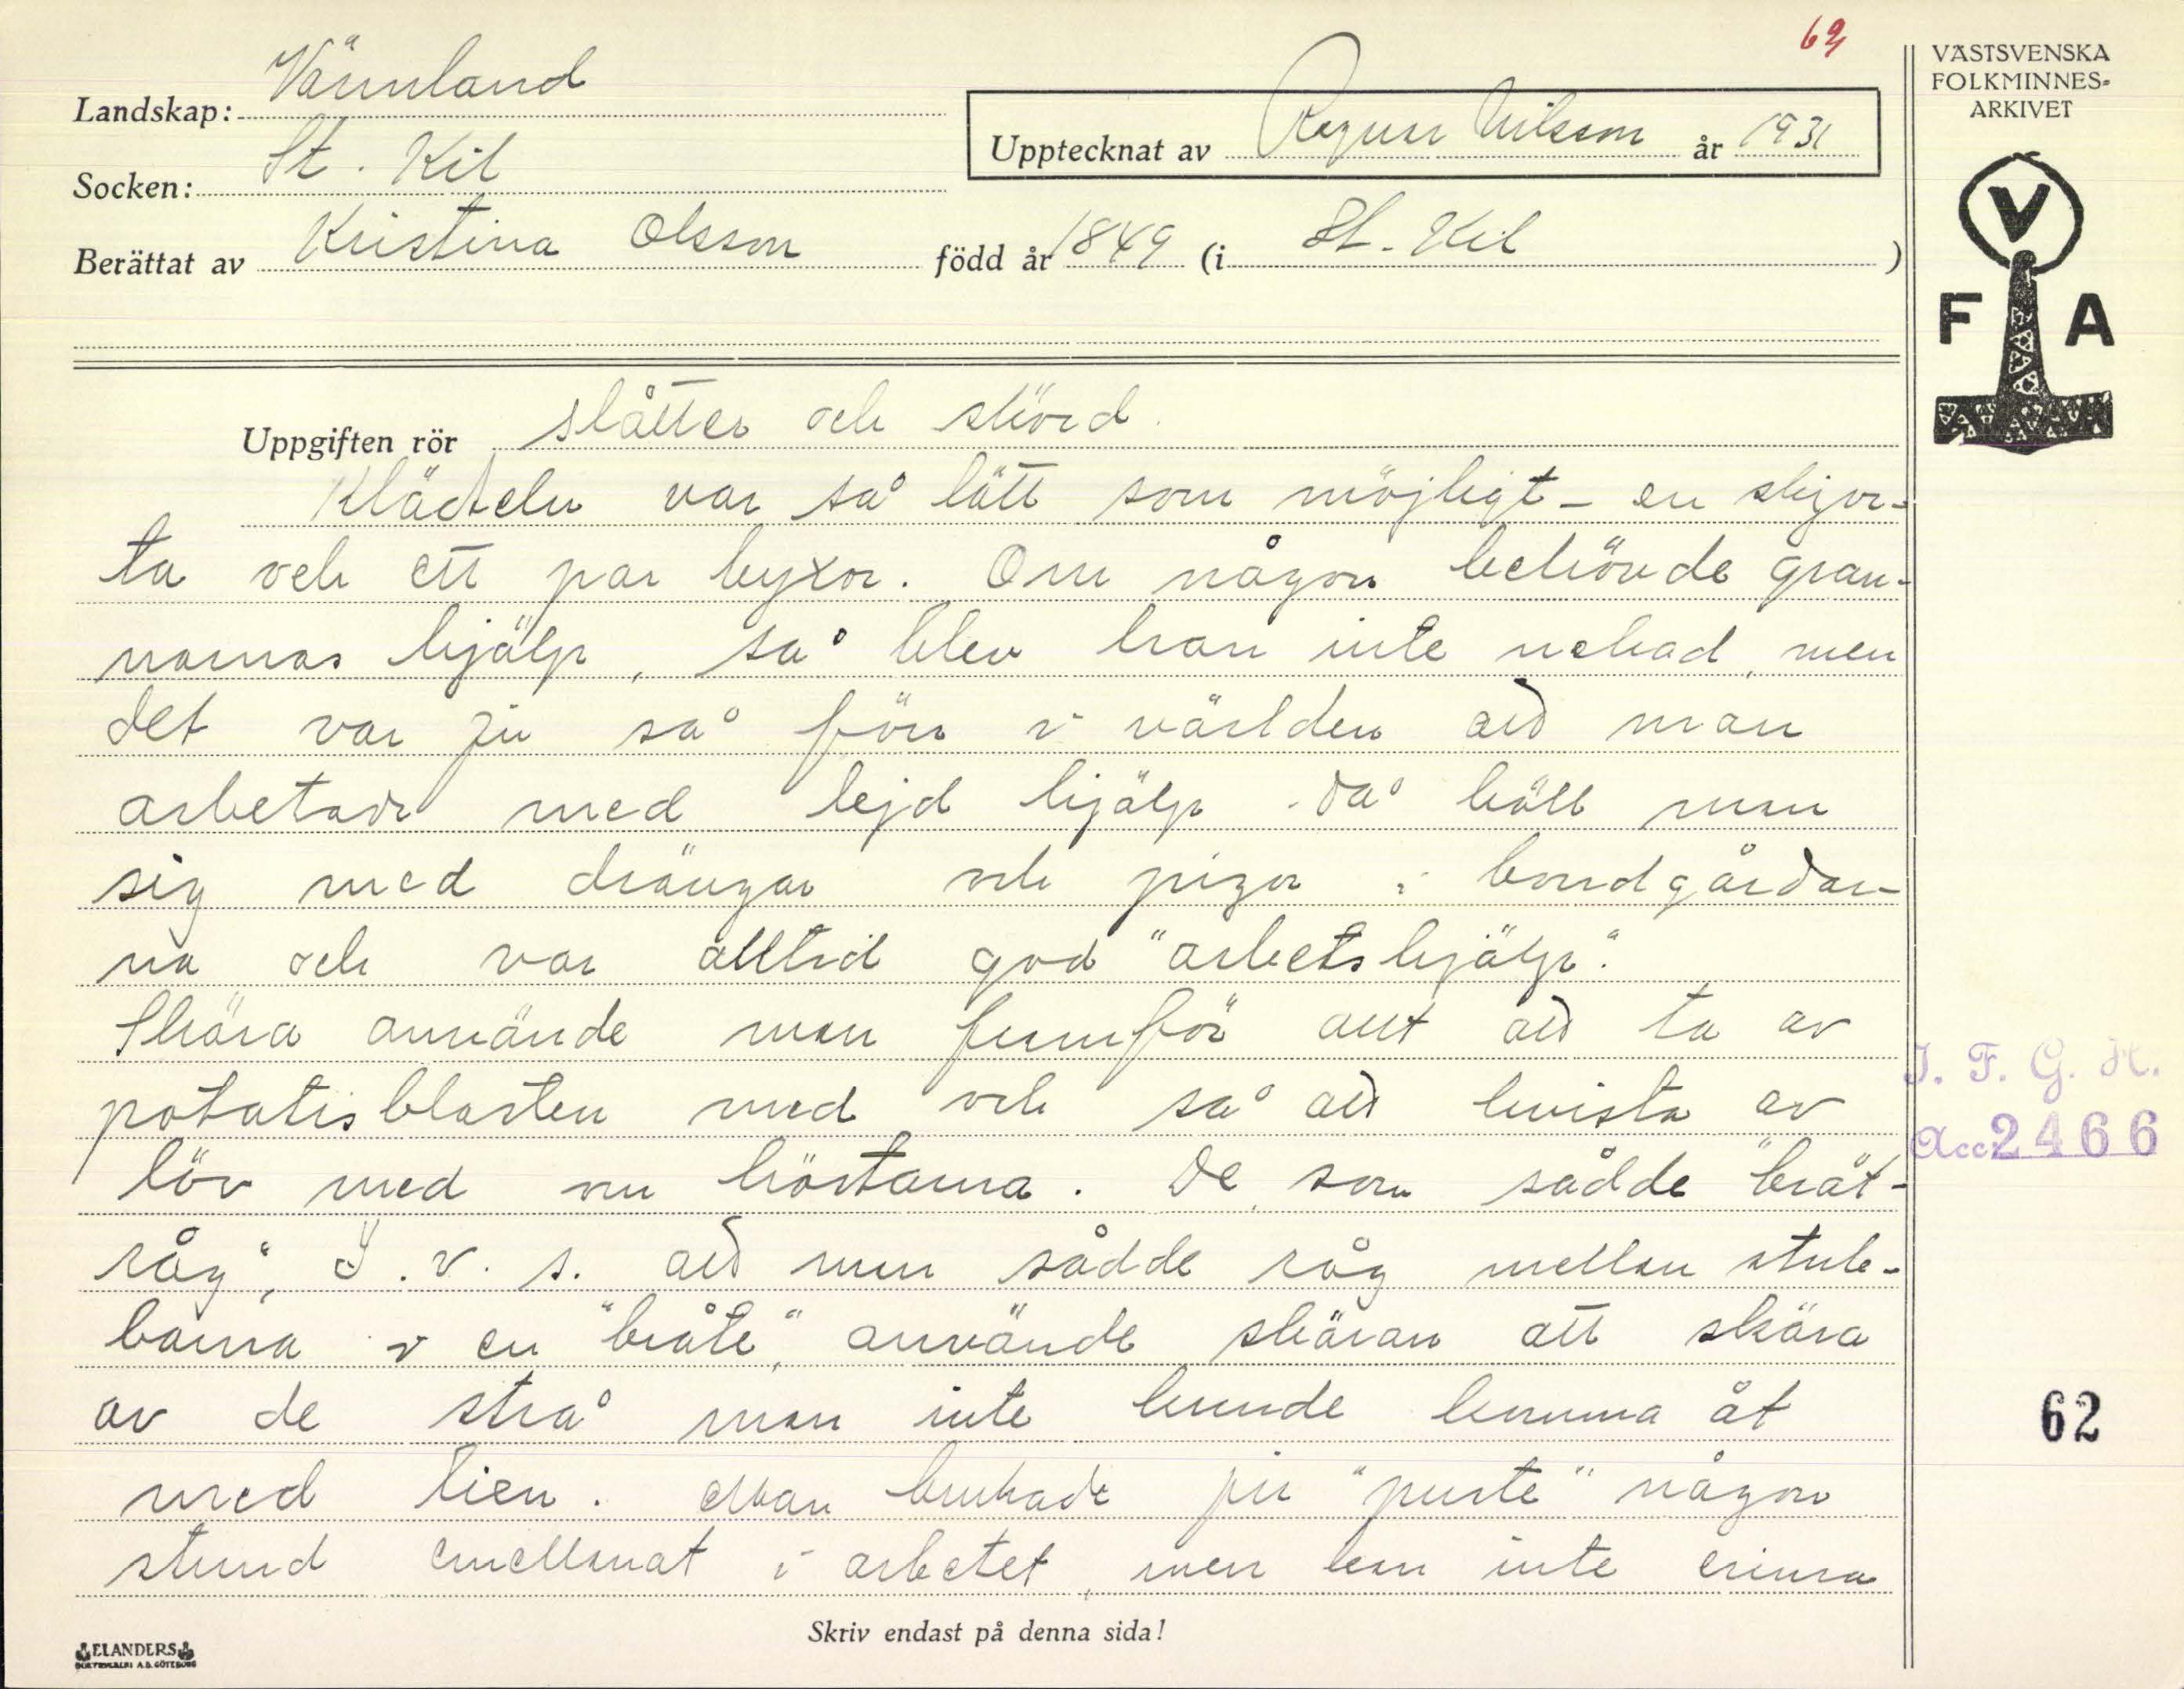 62
VÄSTSVENSKA
FOLKMINNES-
ARKIVET
Landskap: Värmland
Upptecknat av Ragnar Nilsson år 1931
Socken: St. Kil
Berättat av Kristina Olsson född år 1849 (i St. Kil)
V
F A
Uppgiften rör slåtter och skörd.
Klädseln var så lätt som möjligt - en skjor-
ta och ett par byxor. Om någon behövde gran-
narnas hjälp, så blev han inte nekad, men
det var ju så förr i världen att man
arbetade med lejd hjälp. Då höll man
sig med drängar och pigor i bondgårdar-
na och var alltid god "arbetshjälp".
Skära använde man framför allt att ta av
potatisblasten med och så att kvista av
löv med om höstarna. De som sådde "bråt-
råg", d.v.s. att man sådde råg mellan stub-
barna i en "bråte", använde skäran att skära
av de strå man inte kunde komma åt
med lien. Man brukade ju "puste" någon
stund emellanåt i arbetet, men kan inte erinra
I. F. G. H.
Acc. 2466
62
Skriv endast på denna sida!
ELANDERS
BOKTRYCKERI A.B. GÖTEBORG